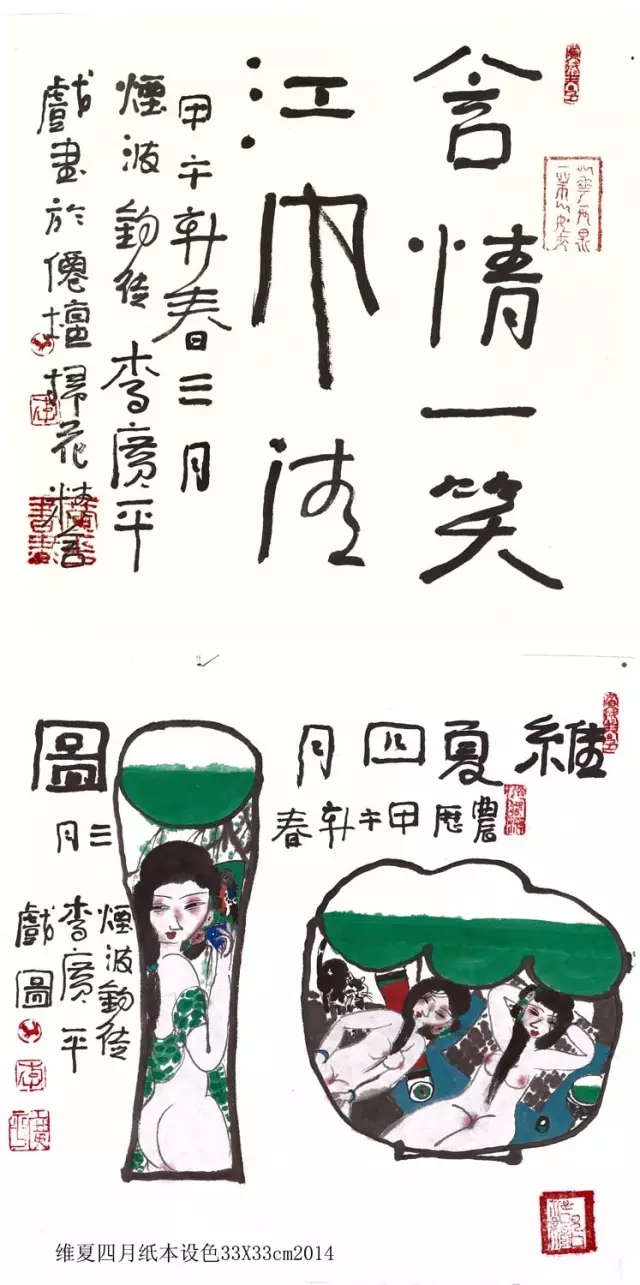 含情一笑
江
甲午新春三月
煙波釣徒李廣平
戲畫於僊壇掃花精舍
維夏四月圖
農歷甲午新春三月
煙波釣徒
李廣平
戲圖
维夏四月纸本设色33X33cm2014